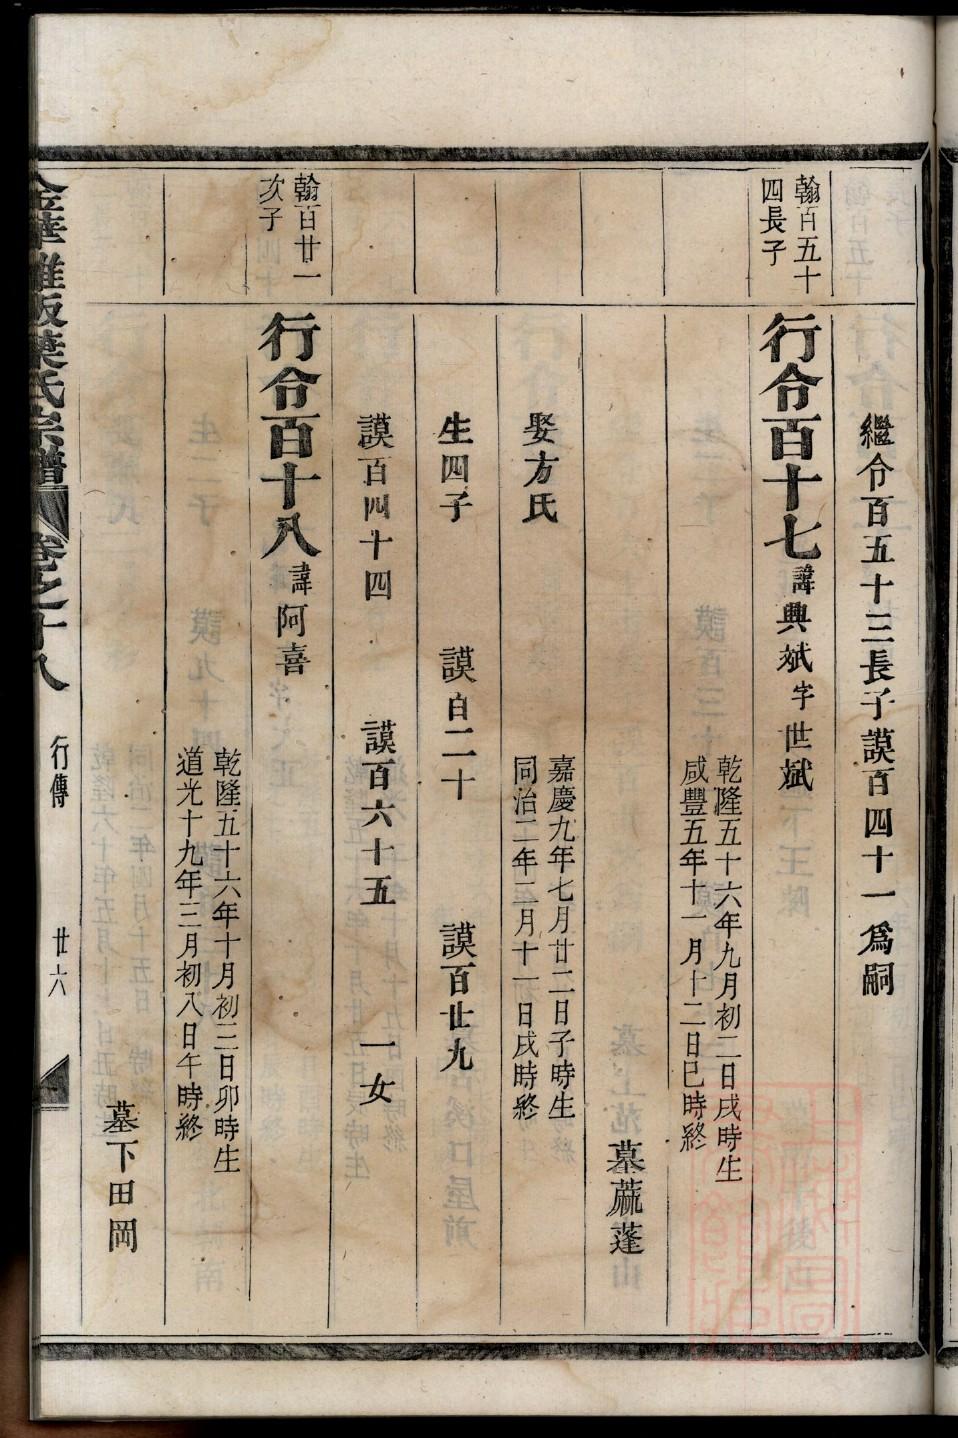 繼令百五十三長子謨百四十一爲嗣
翰百五十
四長子
行令百十七諱興斌字世斌
乾隆五十六年九月初二日戌時生
咸豐五年十一月十二日巳時終
墓蔴蓬山
娶方氏
嘉慶九年七月廿二日子時生
同治二年二月十一日戌時終
生四子 謨百二十 謨百廿九
謨百四十四 謨百六十五 一女
翰百廿一
次子
行令百十八諱阿喜
乾隆五十六年十月初三日卯時生
道光十九年三月初八日午時終
墓下田岡
金華雅畈葉氏宗譜 卷之十八 行傳 廿六